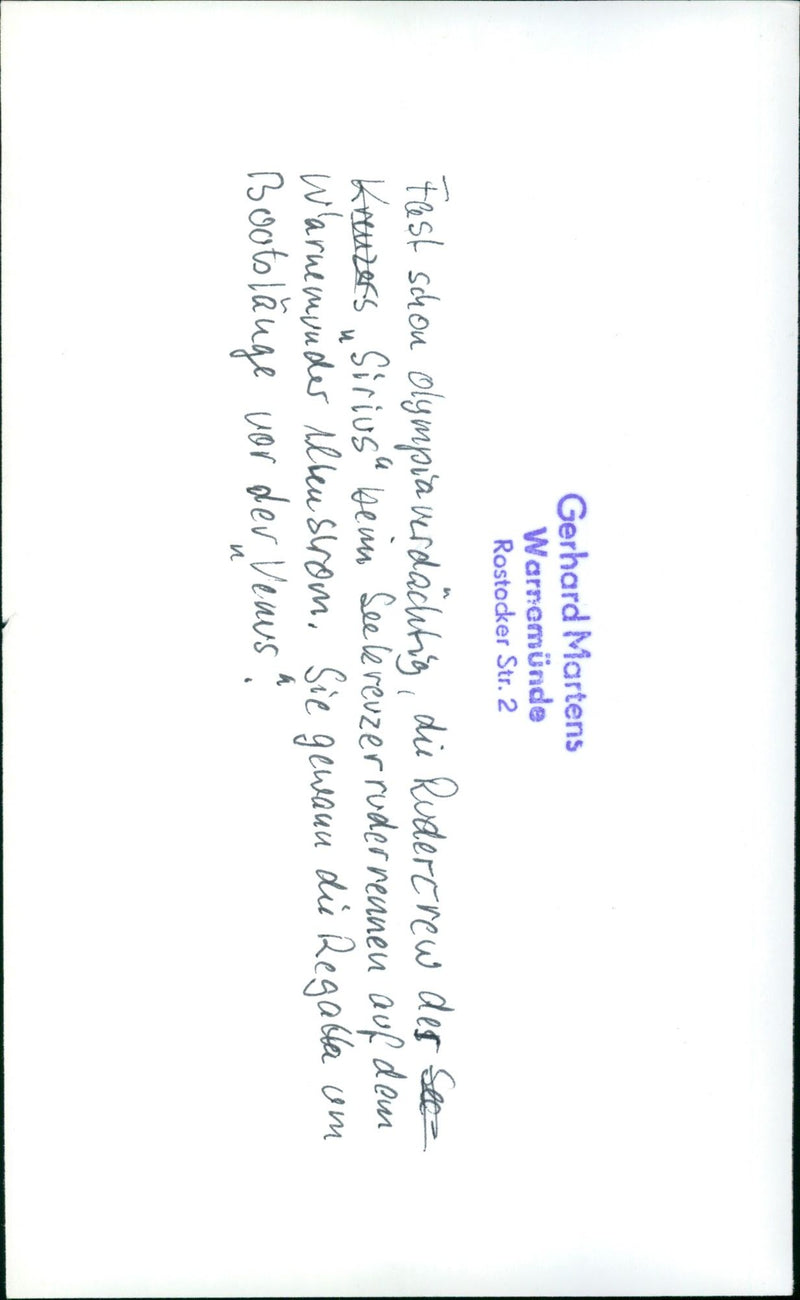 Gerhard Martens
Warnemünde
Rostocker Str. 2
Fast schon olympiaverdächtig, die Rudercrew der See-
Kreuzers „Sirius“ beim Seekreuzerruderrennen auf dem
Warnemünder Alten Strom. Sie gewann die Regatta um
Bootslänge vor der „Venus“.